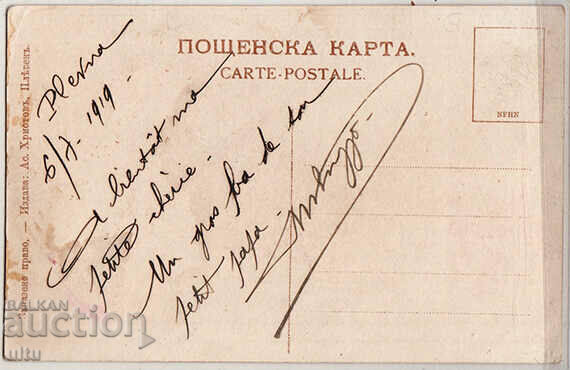 ПОЩЕНСКА КАРТА.
CARTE-POSTALE.
NFHN
Запазено право, — Издава: Ас. Христовъ, Плѣвенъ.
Plevna
6/7. 1919.
A bientôt ma
petite chérie.
Un gros ba de ton
petit papa.
BALKAN
auction
ultu